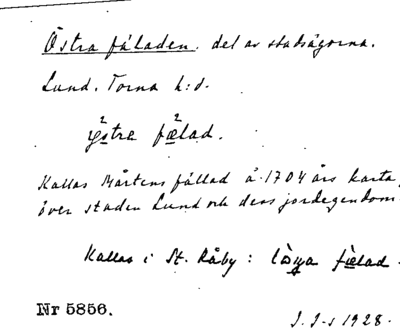 Östra fäladen. del av stadsägorna.
Lund. Torna h:d.
ÿstre fœlad.
Kallas Mårtens fällad å 1704 års karta
över staden Lund och dess jordegendom
Kallas i St. Råby: fœlad.
Nr 5856.
1928.